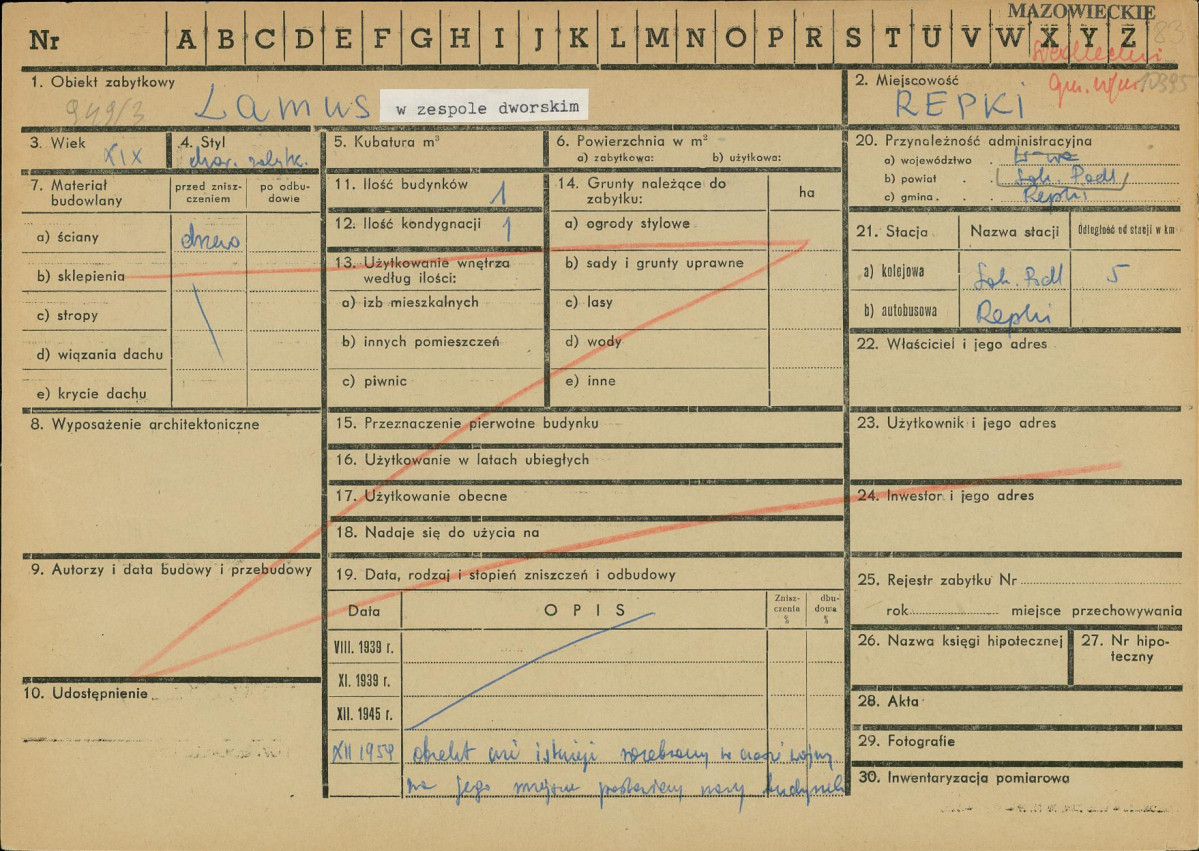 MAZOWIECKIE
Nr A B C D E F G H I J K L M N O P R S T U V W X Y Z
1. Obiekt zabytkowy
949/3 LAMUS w zespole dworskim
2. Miejscowość
10395
REPKI
3. Wiek XIX
4. Styl
5. Kubatura m³
6. Powierzchnia w m²
a) zabytkowa: b) użytkowa:
7. Materiał budowlany
przed znisz-
czeniem
po odbu-
dowie
a) ściany drewno
b) sklepienia
c) stropy
d) wiązania dachu
e) krycie dachu
8. Wyposażenie architektoniczne
9. Autorzy i data budowy i przebudowy
10. Udostępnienie
11. Ilość budynków 1
12. Ilość kondygnacji 1
13. Użytkowanie wnętrza
według ilości:
a) izb mieszkalnych
b) innych pomieszczeń
c) piwnic
14. Grunty należące do
zabytku:
ha
a) ogrody stylowe
b) sady i grunty uprawne
c) lasy
d) wody
e) inne
15. Przeznaczenie pierwotne budynku
16. Użytkowanie w latach ubiegłych
17. Użytkowanie obecne
18. Nadaje się do użycia na
19. Data, rodzaj i stopień zniszczeń i odbudowy
Data
OPIS
Znisz-
czenia
%
dbu-
dowa
%
VIII. 1939 r.
XI. 1939 r.
XII. 1945 r.
XII 1959 obiekt nie istnieje rozebrany w czasie wojny
na jego miejscu postawiony nowy budynek
20. Przynależność administracyjna
a) województwo . W-wa
b) powiat . . Sok. Podl
c) gmina . . . Repki
21. Stacja
Nazwa stacji
Odległość od stacji w km
a) kolejowa Sok. Podl 5
b) autobusowa Repki
22. Właściciel i jego adres
23. Użytkownik i jego adres
24. Inwestor i jego adres
25. Rejestr zabytku Nr
rok miejsce przechowywania
26. Nazwa księgi hipotecznej
27. Nr hipo-
teczny
28. Akta
29. Fotografie
30. Inwentaryzacja pomiarowa